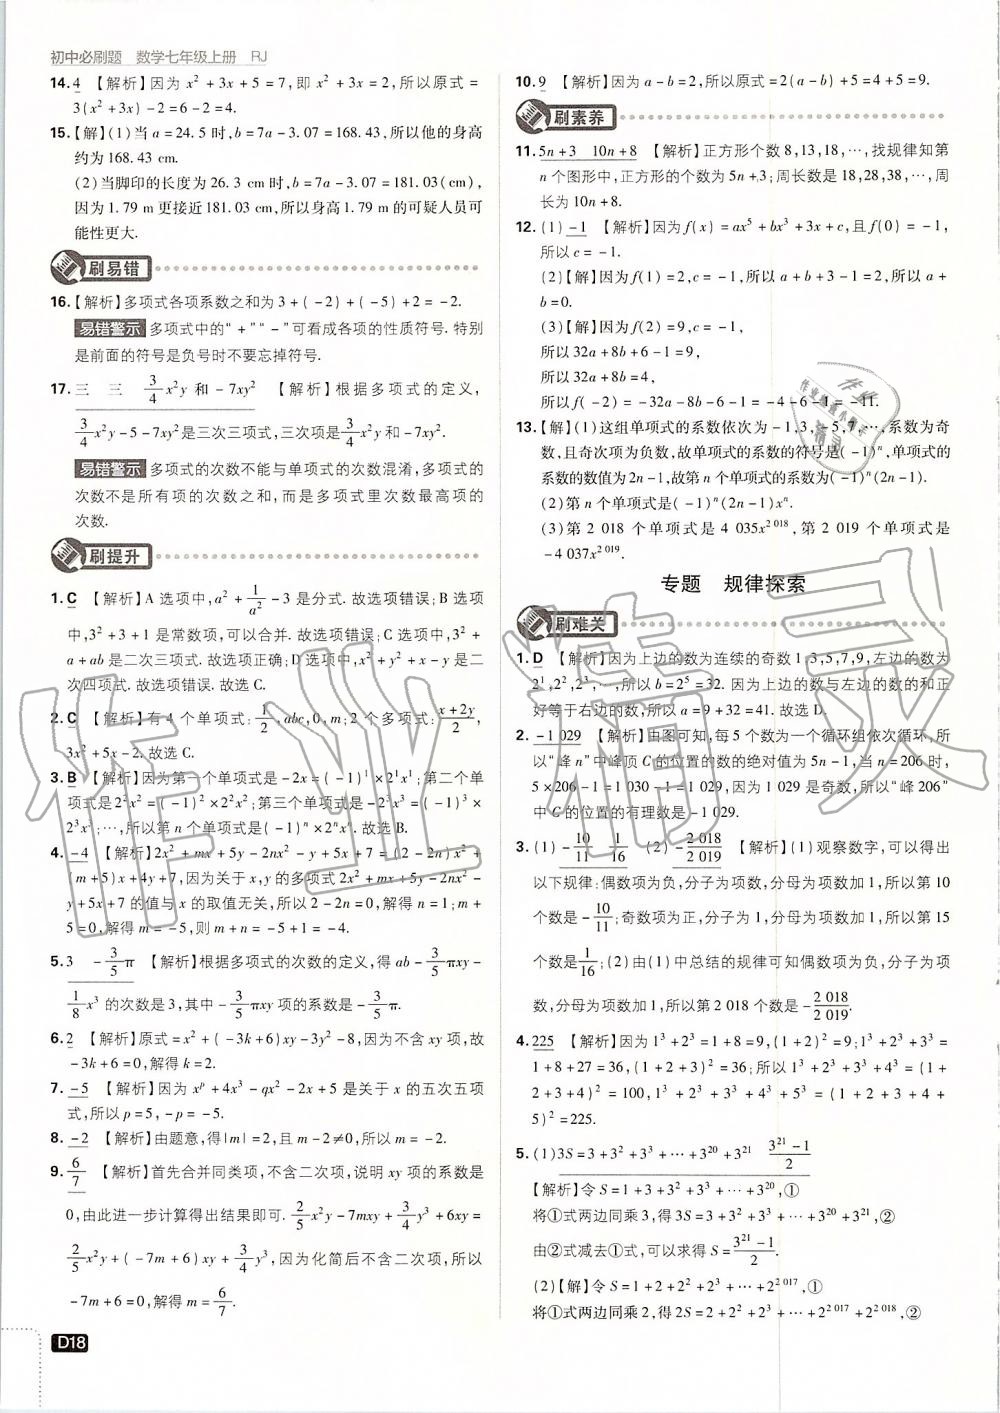 初中必刷题 数学七年级上册 RJ
14. 4 【解析】因为 x² + 3x + 5 = 7, 即 x² + 3x = 2, 所以原式 =
3(x² + 3x) - 2 = 6 - 2 = 4.
15.【解】(1)当 a = 24.5 时, b = 7a - 3.07 = 168.43, 所以他的身高
约为 168.43 cm.
(2)当脚印的长度为 26.3 cm 时, b = 7a - 3.07 = 181.03(cm),
因为 1.79 m 更接近 181.03 cm, 所以身高 1.79 m 的可疑人员可
能性更大.
刷易错
16.【解析】多项式各项系数之和为 3 + (-2) + (-5) + 2 = -2.
易错警示 多项式中的“+”“-”可看成各项的性质符号. 特别
是前面的符号是负号时不要忘掉符号.
17. 三 三 3/4 x²y 和 -7xy² 【解析】根据多项式的定义,
3/4 x²y - 5 - 7xy² 是三次三项式, 三次项是 3/4 x²y 和 -7xy².
易错警示 多项式的次数不能与单项式的次数混淆, 多项式的
次数不是所有项的次数之和, 而是多项式里次数最高项的
次数.
刷提升
1. C 【解析】A 选项中, a² + 1/a² - 3 是分式. 故选项错误; B 选项
中, 3² + 3 + 1 是常数项, 可以合并. 故选项错误; C 选项中, 3² +
a + ab 是二次三项式. 故选项正确; D 选项中, x² + y² + x - y 是二
次四项式. 故选项错误. 故选 C.
2. C 【解析】有 4 个单项式: 1/2, abc, 0, m; 2 个多项式: (x + 2y)/2,
3x² + 5x - 2. 故选 C.
3. B 【解析】因为第一个单项式是 -2x = (-1)¹ × 2¹x¹; 第二个单
项式是 2²x² = (-1)² × 2²x²; 第三个单项式是 -2³x³ = (-1)³ ×
2³x³; …, 所以第 n 个单项式是 (-1)ⁿ × 2ⁿxⁿ. 故选 B.
4. -4 【解析】2x² + mx + 5y - 2nx² - y + 5x + 7 = (2 - 2n)x² +
(m + 5)x + 4y + 7, 因为关于 x, y 的多项式 2x² + mx + 5y - 2nx² -
y + 5x + 7 的值与 x 的取值无关, 所以 2 - 2n = 0, 解得 n = 1; m +
5 = 0, 解得 m = -5, 则 m + n = -5 + 1 = -4.
5. 3 -3/5 π 【解析】根据多项式的次数的定义, 得 ab - 3/5 πxy -
1/8 x³ 的次数是 3, 其中 -3/5 πxy 项的系数是 -3/5 π.
6. 2 【解析】原式 = x² + (-3k + 6)xy - 3y² - 8, 因为不含 xy 项, 故
-3k + 6 = 0, 解得 k = 2.
7. -5 【解析】因为 xᵖ + 4x³ - qx² - 2x + 5 是关于 x 的五次五项
式, 所以 p = 5, -p = -5.
8. -2 【解析】由题意, 得|m| = 2, 且 m - 2 ≠ 0, 所以 m = -2.
9. 6/7 【解析】首先合并同类项, 不含二次项, 说明 xy 项的系数是
0, 由此进一步计算得出结果即可. 2/5 x²y - 7mxy + 3/4 y³ + 6xy =
2/5 x²y + (-7m + 6)xy + 3/4 y³, 因为化简后不含二次项, 所以
-7m + 6 = 0, 解得 m = 6/7.
D18
10. 9 【解析】因为 a - b = 2, 所以原式 = 2(a - b) + 5 = 4 + 5 = 9.
刷素养
11. 5n + 3 10n + 8 【解析】正方形个数 8, 13, 18, …, 找规律知第
n 个图形中, 正方形的个数为 5n + 3; 周长数是 18, 28, 38, …, 周
长为 10n + 8.
12. (1) -1 【解析】因为 f(x) = ax⁵ + bx³ + 3x + c, 且 f(0) = -1,
所以 c = -1.
(2)【解】因为 f(1) = 2, c = -1, 所以 a + b + 3 - 1 = 2, 所以 a +
b = 0.
(3)【解】因为 f(2) = 9, c = -1,
所以 32a + 8b + 6 - 1 = 9,
所以 32a + 8b = 4,
所以 f(-2) = -32a - 8b - 6 - 1 = -4 - 6 - 1 = -11.
13.【解】(1)这组单项式的系数依次为 -1, 3, -5, 7, …, 系数为奇
数, 且奇次项为负数, 故单项式的系数的符号是 (-1)ⁿ, 单项式的
系数的绝对值为 2n - 1, 故第 n 个单项式的系数是 (-1)ⁿ(2n - 1).
(2)第 n 个单项式是 (-1)ⁿ(2n - 1)xⁿ.
(3)第 2 018 个单项式是 4 035x² ⁰¹⁸, 第 2 019 个单项式是
-4 037x² ⁰¹⁹.
专题 规律探索
刷难关
1. D 【解析】因为上边的数为连续的奇数 1, 3, 5, 7, 9, 左边的数为
2¹, 2², 2³, …, 所以 b = 2⁵ = 32. 因为上边的数与左边的数的和正
好等于右边的数, 所以 a = 9 + 32 = 41. 故选 D.
2. -1 029 【解析】由图可知, 每 5 个数为一个循环组依次循环, 所
以“峰 n”中峰顶 C 的位置的数的绝对值为 5n - 1, 当 n = 206 时,
5 × 206 - 1 = 1 030 - 1 = 1 029, 因为 1 029 是奇数, 所以“峰 206”
中 C 的位置的有理数是 -1 029.
3. (1) -10/11 1/16 (2) -2 018/2 019 【解析】(1)观察数字, 可以得出
以下规律: 偶数项为负, 分子为项数, 分母为项数加 1, 所以第 10
个数是 -10/11; 奇数项为正, 分子为 1, 分母为项数加 1, 所以第 15
个数是 1/16; (2)由(1)中总结的规律可知偶数项为负, 分子为项
数, 分母为项数加 1, 所以第 2 018 个数是 -2 018/2 019.
4. 225 【解析】因为 1³ + 2³ = 1 + 8 = 9, (1 + 2)² = 9; 1³ + 2³ + 3³ =
1 + 8 + 27 = 36, (1 + 2 + 3)² = 36; 所以 1³ + 2³ + 3³ + 4³ = (1 +
2 + 3 + 4)² = 100, 1³ + 2³ + 3³ + 4³ + 5³ = (1 + 2 + 3 + 4 +
5)² = 225.
5. (1) 3S = 3 + 3² + 3³ + … + 3²⁰ + 3²¹ (3²¹ - 1)/2
【解析】令 S = 1 + 3 + 3² + 3³ + … + 3²⁰, ①
将①式两边同乘 3, 得 3S = 3 + 3² + 3³ + … + 3²⁰ + 3²¹, ②
由②式减去①式, 可以求得 S = (3²¹ - 1)/2.
(2)【解】令 S = 1 + 2 + 2² + 2³ + … + 2² ⁰¹⁷, ①
将①式两边同乘 2, 得 2S = 2 + 2² + 2³ + … + 2² ⁰¹⁷ + 2² ⁰¹⁸, ②
作业精灵